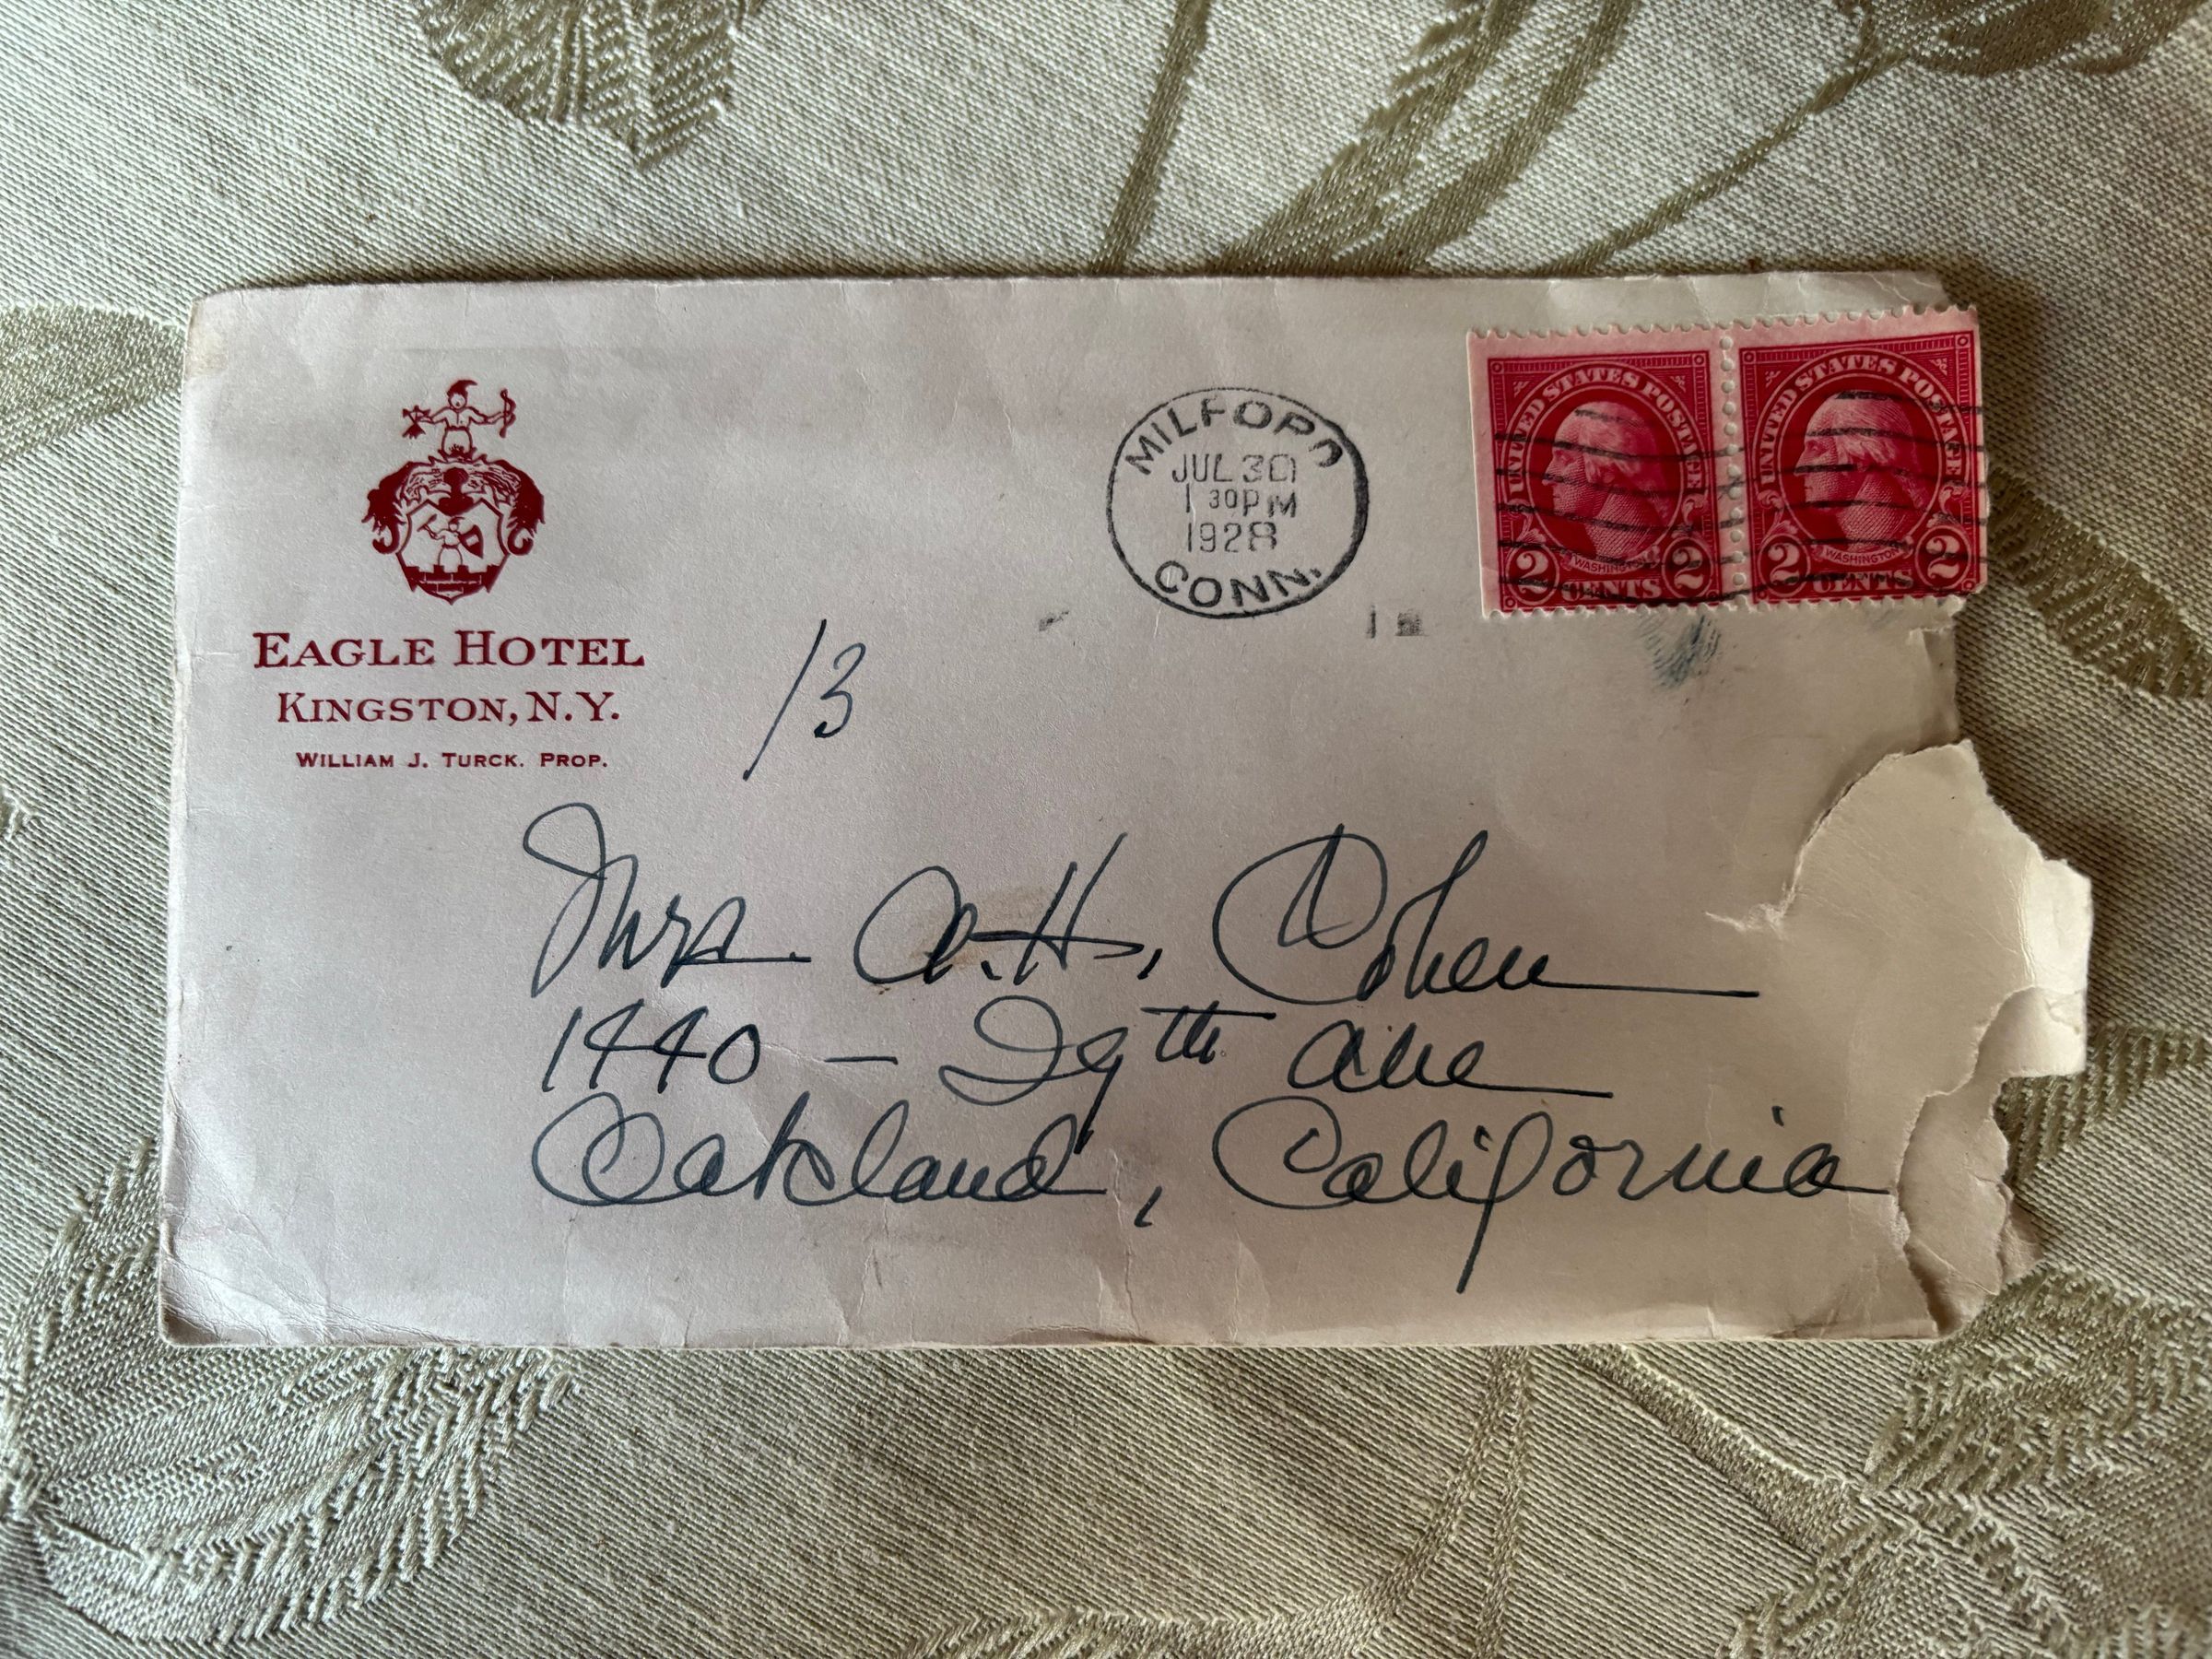 EAGLE HOTEL
KINGSTON, N.Y.
WILLIAM J. TURCK. PROP.
MILFORD
JUL 30
1 30 PM
1928
CONN.
UNITED STATES POSTAGE
WASHINGTON
2 CENTS 2
UNITED STATES POSTAGE
WASHINGTON
2 CENTS 2
13
Mrs. A.H. Cohen
1440 - 29th Ave
Oakland, California